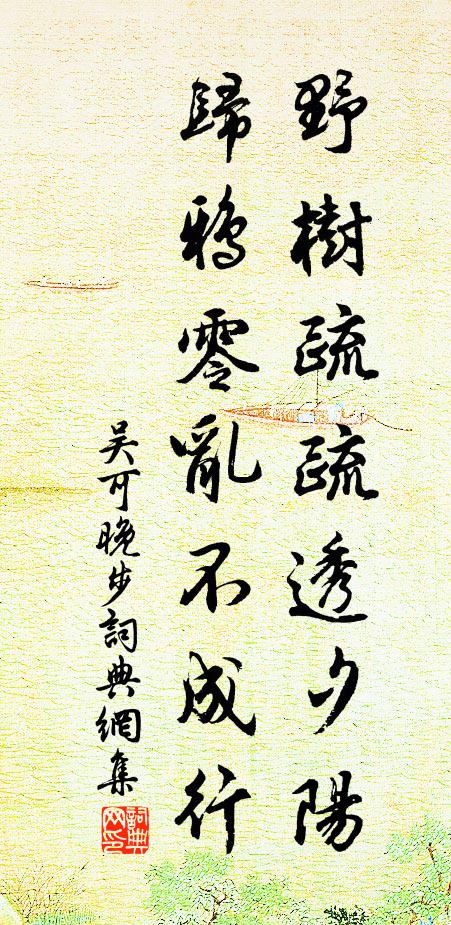 野樹疏疏透夕陽
歸鴉零亂不成行
吳可晚步詞典網集
詞典網印